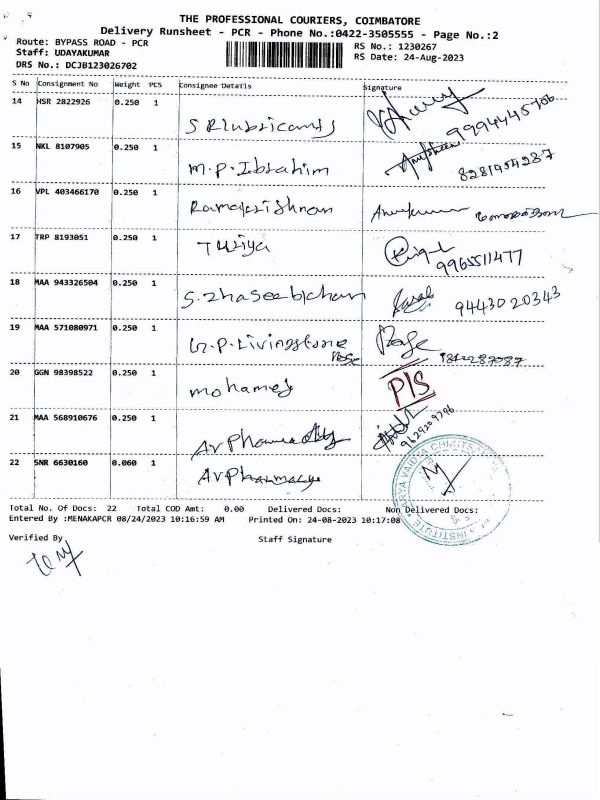 THE PROFESSIONAL COURIERS, COIMBATORE
Delivery Runsheet - PCR - Phone No.:0422-3505555 - Page No.:2
Route: BYPASS ROAD - PCR RS No.: 1230267
Staff: UDAYAKUMAR RS Date: 24-Aug-2023
DRS No.: DCJB123026702
S No Consignment No Weight PCS Consignee Details Signature
14 HSR 2822926 0.250 1 S R Lubricants 9994445706
15 NKL 8107905 0.250 1 M.P. Ibrahim 8281954287
16 VPL 403466170 0.250 1 Ramakrishnan
17 TRP 8193051 0.250 1 9965511477
18 MAA 943326504 0.250 1 9443020343
19 MAA 571080971 0.250 1 Livingstone
Rose
20 GGN 98398522 0.250 1 mohamed PIS
21 MAA 568910676 0.250 1 AV Pharma 9629209796
22 SNR 6630160 0.060 1 AV Pharmacy
ARYA VAIDYA CHIKITSALAYAM
INSTITUTE
Total No. Of Docs: 22 Total COD Amt: 0.00 Delivered Docs: Non Delivered Docs:
Entered By :MENAKAPCR 08/24/2023 10:16:59 AM Printed On: 24-08-2023 10:17:08
Verified By Staff Signature